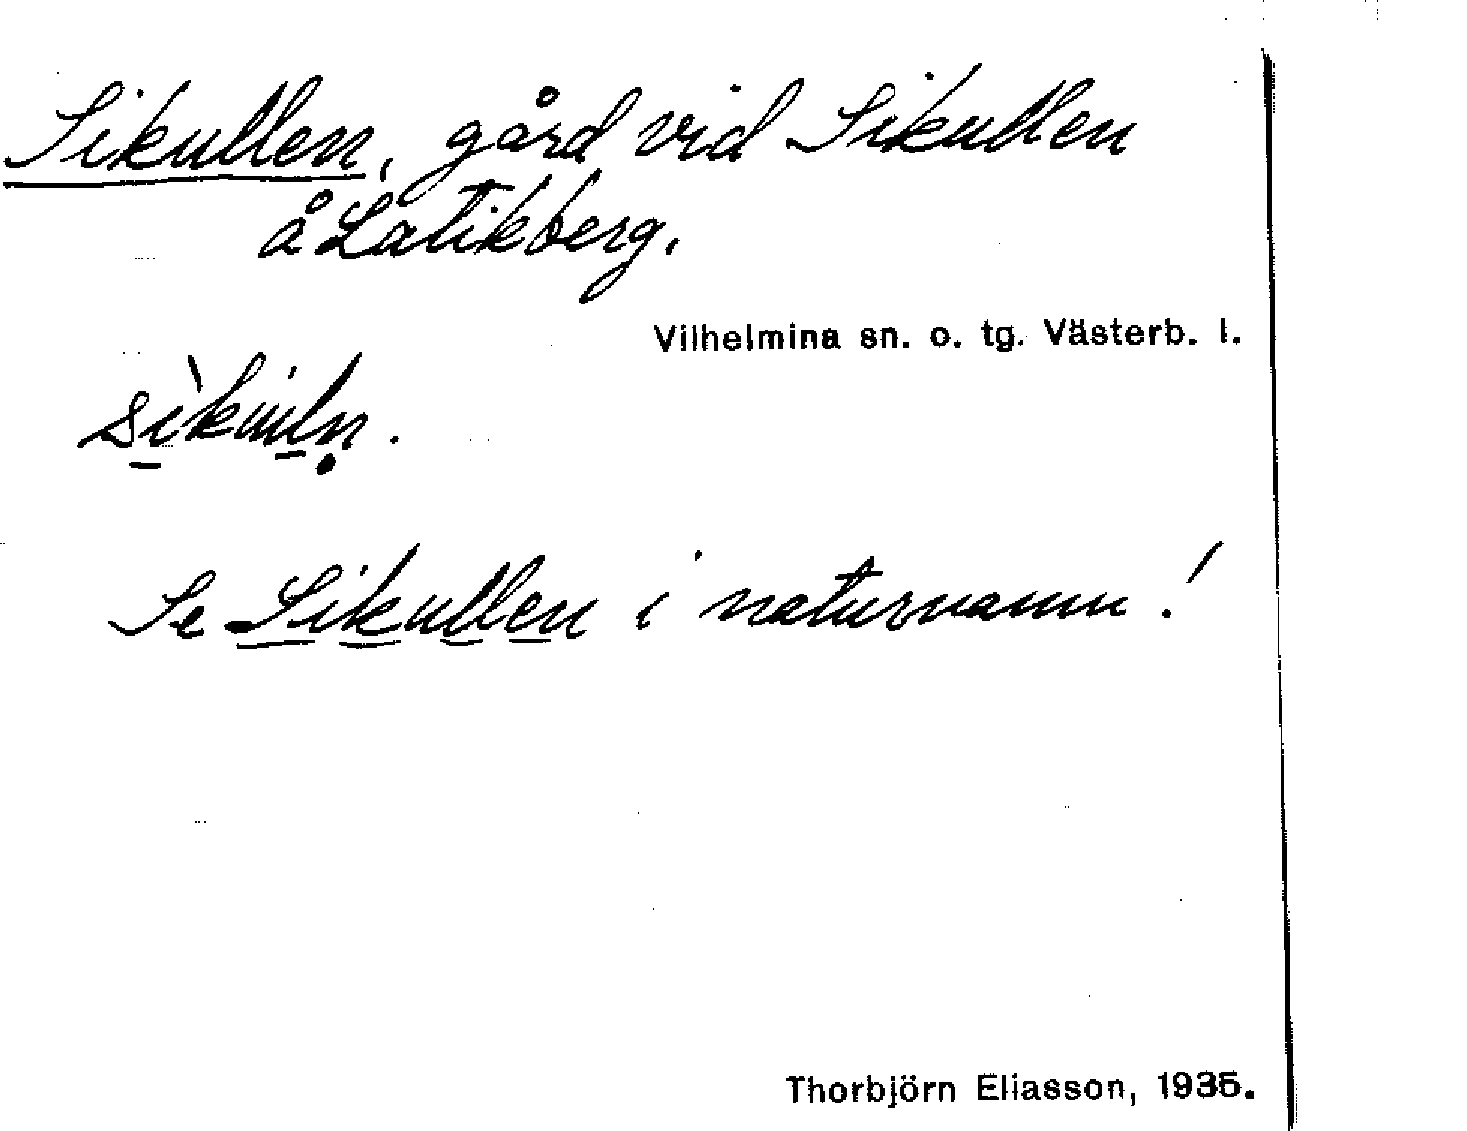 Sikullen, gård vid Sikullen
å Latikberg.
Vilhelmina sn. o. tg. Västerb. l.
Se Sikullen i naturnamn!
Thorbjörn Eliasson, 1935.